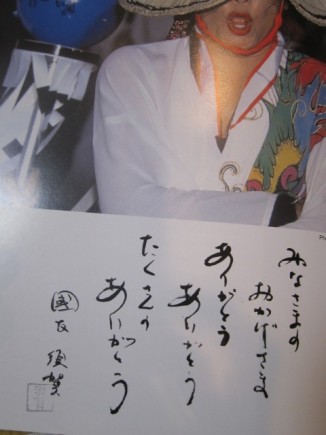 みなさまの
おかげさま
ありがとう
ありがとう
たくさんの
ありがとう
國友 須賀